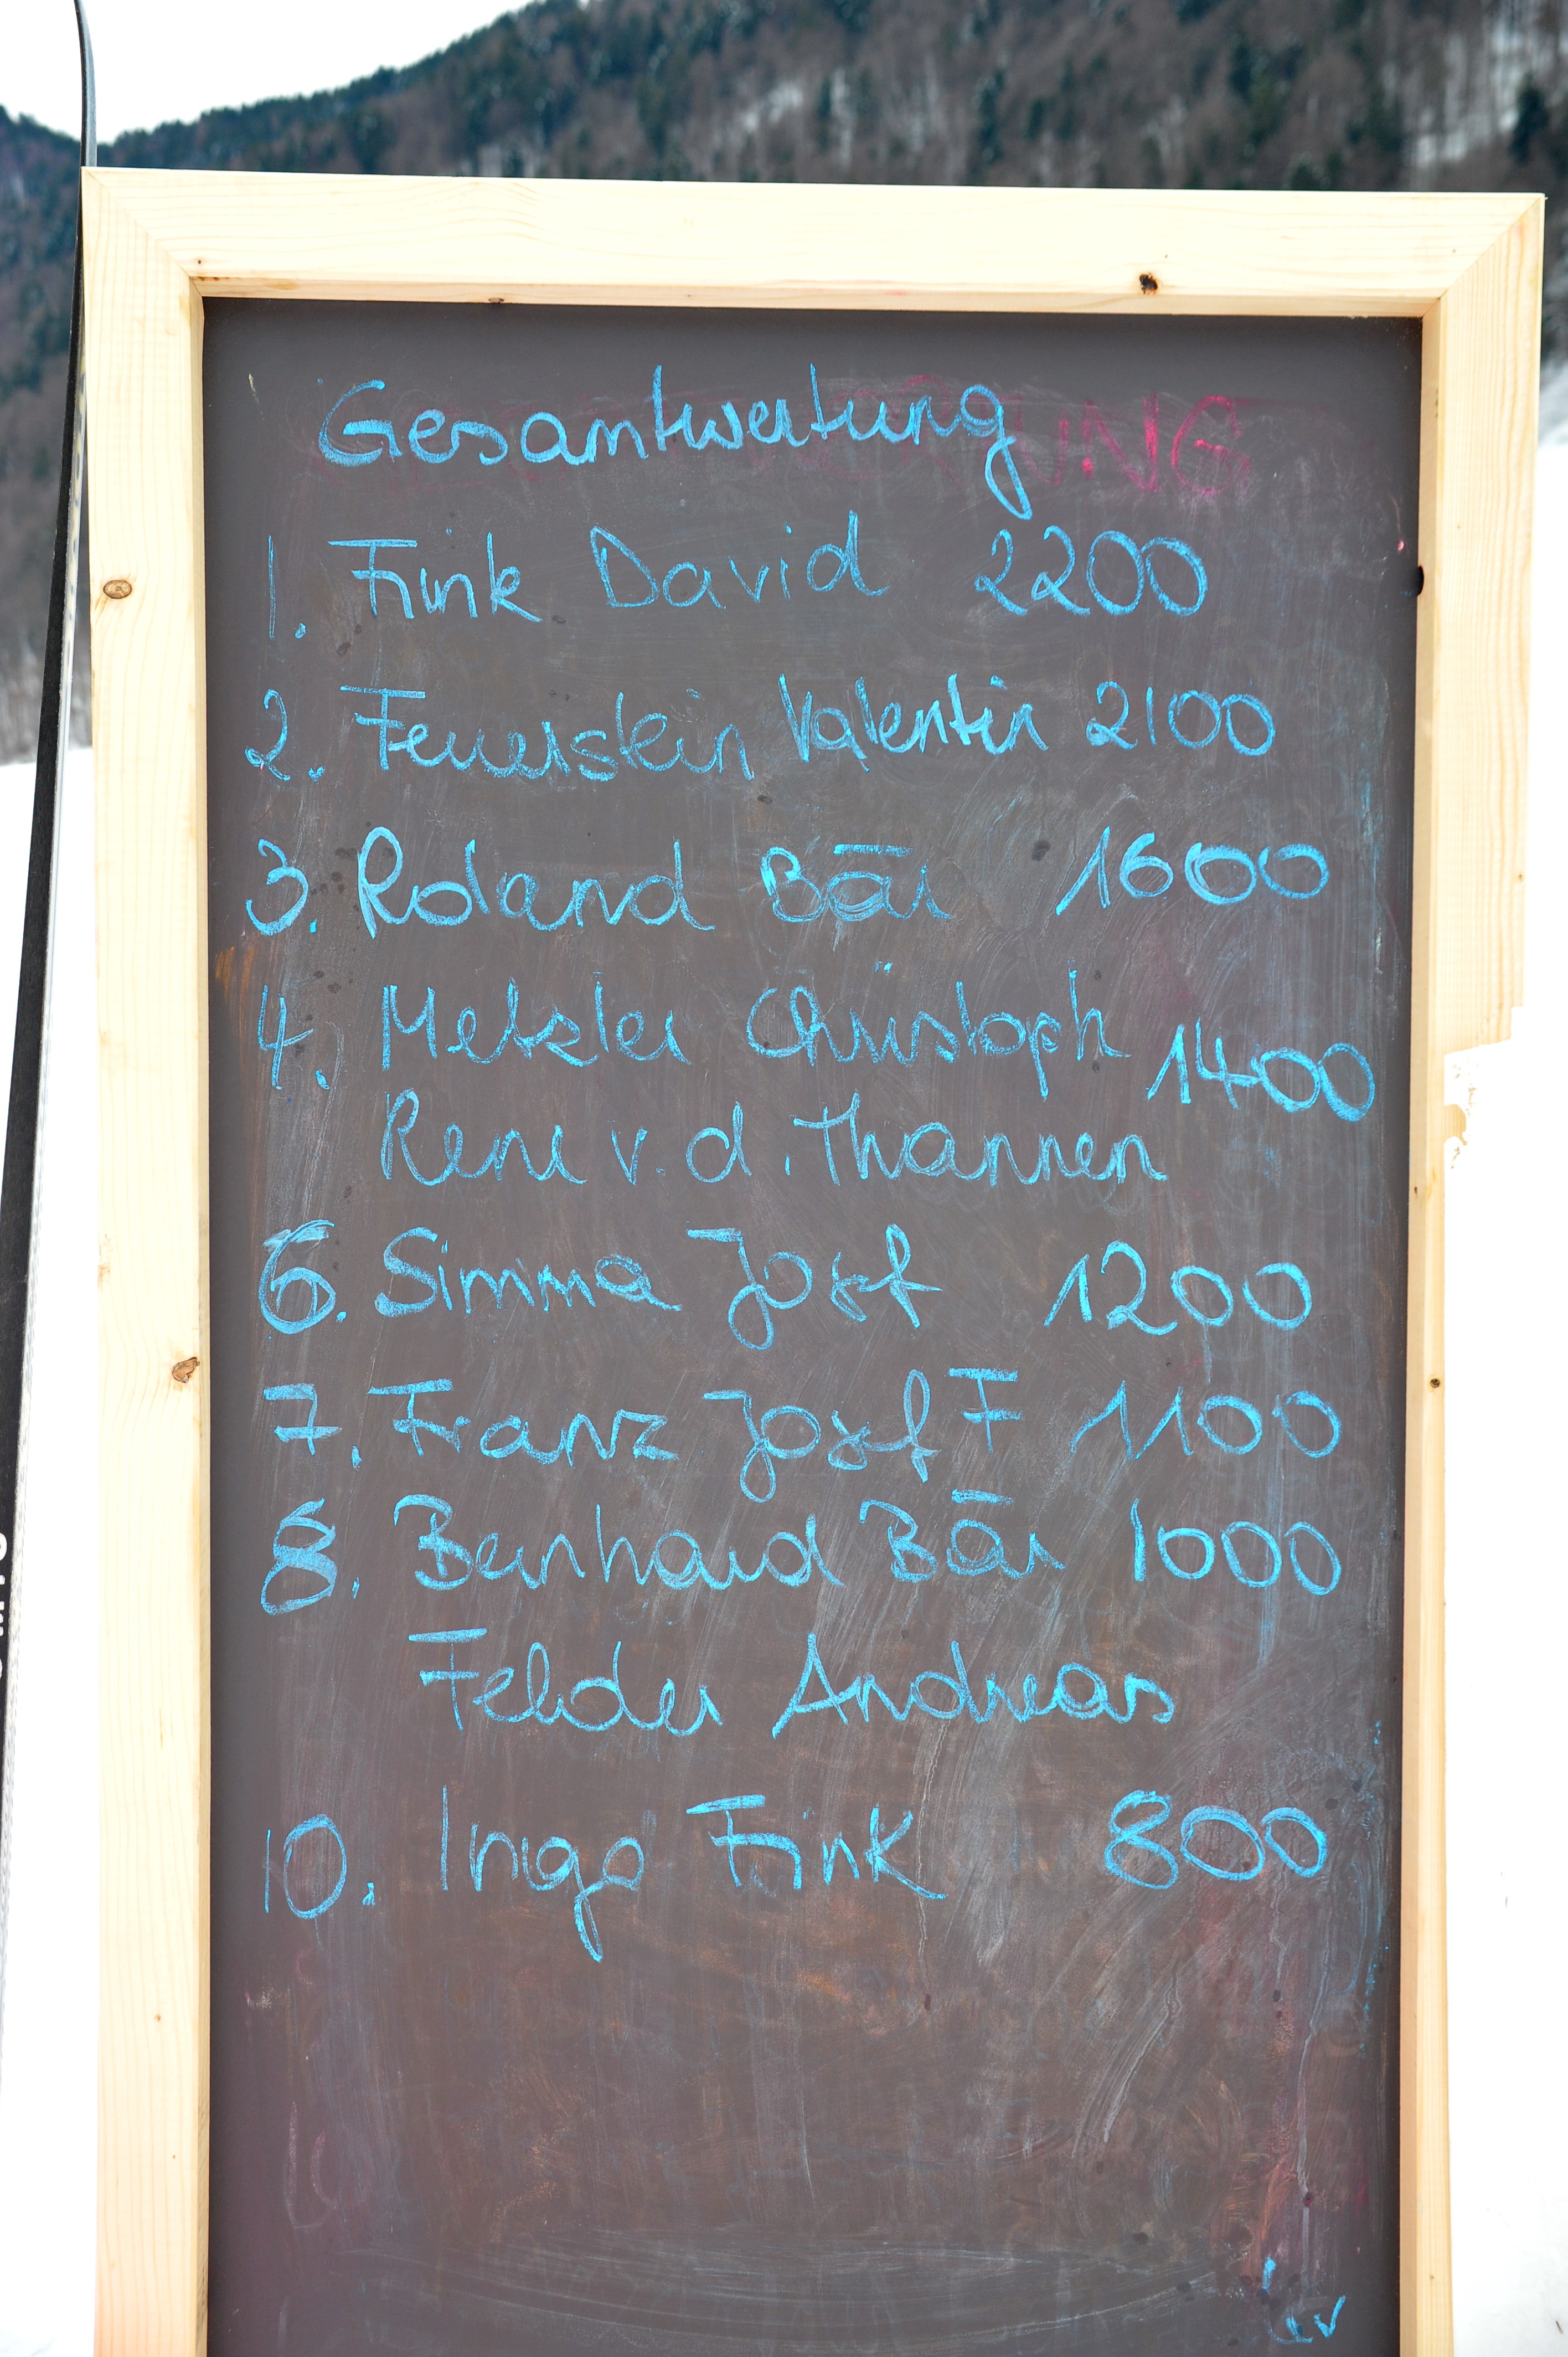 Gesamtwertung
1. Fink David 2200
2. Feuerstein Valentin 2100
3. Roland Bär 1600
4. Metzler Christoph 1400
Rene v. d. Thannen
6. Simma Josef 1200
7. Franz Josef F 1100
8. Bernhard Bär 1000
Felder Andreas
10. Ingo Fink 800